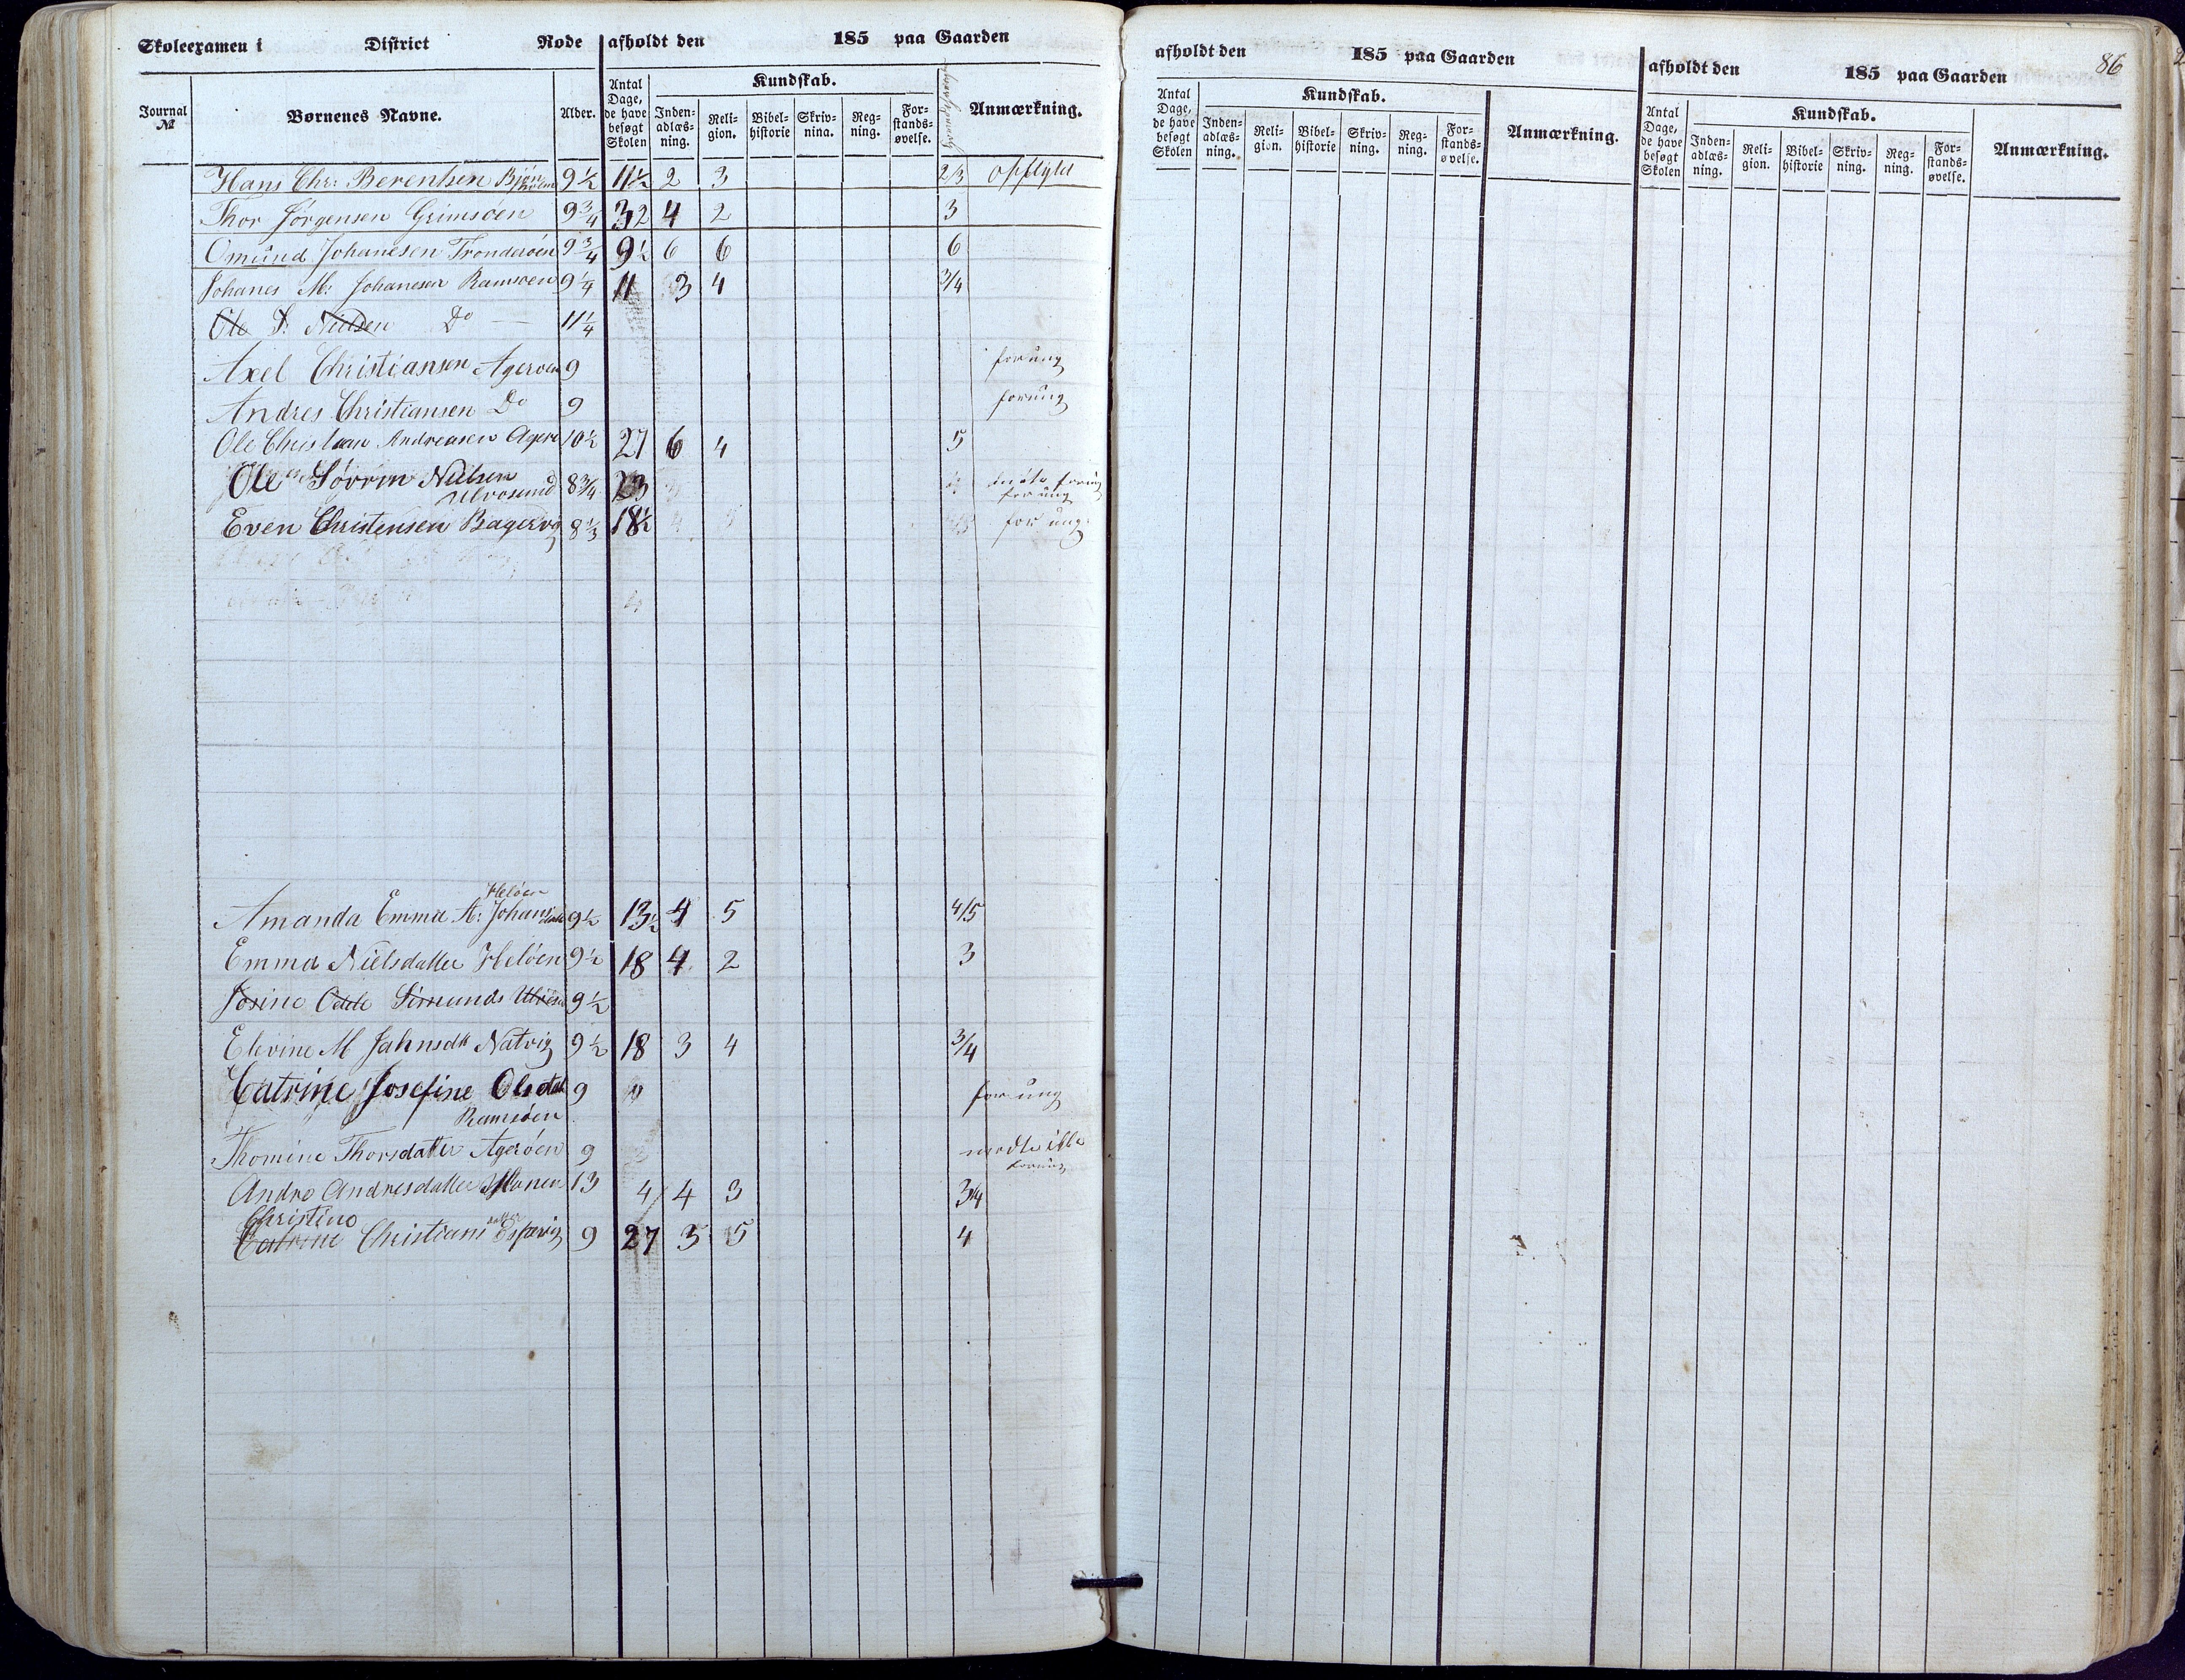 Skoleexamen i District Rode afholdt den 185 paa Gaarden
Journal № Børnenes Navne. Alder. Antal Dage, de have besøgt Skolen Kundskab. Inden-adlæs-ning. Reli-gion. Bibel-historie Skriv-nina. Reg-ning. For-stands-øvelse. Anmærkning.
Hans Chr: Berentsen 9½ 11½ 2 3 2/3 opflyttet
Thor Jørgensen Grimsöen 9¾ 32 4 2 3
Omund Johanesen Tronderöen 9¾ 9½ 6 6 6
Johanes M: Johanesen Ramsöen 9¼ 11 3 4 3/4
Ole S. Nielsen Do — 11¼
Axel Christiansen Ageröen 9 for ung
Andres Christiansen Do 9 for ung
Ole Christian Andreasen Agerö 10½ 27 6 4 5
Ole Sörrin Nielsen
Ulvøsund 8¾ 23 for ung
Even Christensen Bagervig 8⅓ 18½ for ung
Helöen
Amanda Emma A: Johansdatt 9½ 13½ 4 5 4/5
Emma Nielsdatter Helöen 9½ 18 4 2 3
Josine Odde Simunds 9½
Elevine M Jahnsdtt Natvig 9½ 18 3 4 3/4
Catrine Josefine Olsdatt 9 for ung
Ramsöen
Thomine Thorsdatter Ageröen 9 mødte ikke
for ung
Andrea Andresdatter 13 4 4 3 3/4
Christine
Catrine Christiansdatter Espevig 9 27 3 5 4
afholdt den 185 paa Gaarden
Antal Dage, de have besøgt Skolen Kundskab. Inden-adlæs-ning. Reli-gion. Bibel-historie Skriv-ning. Reg-ning. For-stands-øvelse. Anmærkning.
afholdt den 185 paa Gaarden 86
Antal Dage, de have besøgt Skolen Kundskab. Inden-adlæs-ning. Reli-gion. Bibel-historie Skriv-ning. Reg-ning. For-stands-øvelse. Anmærkning.